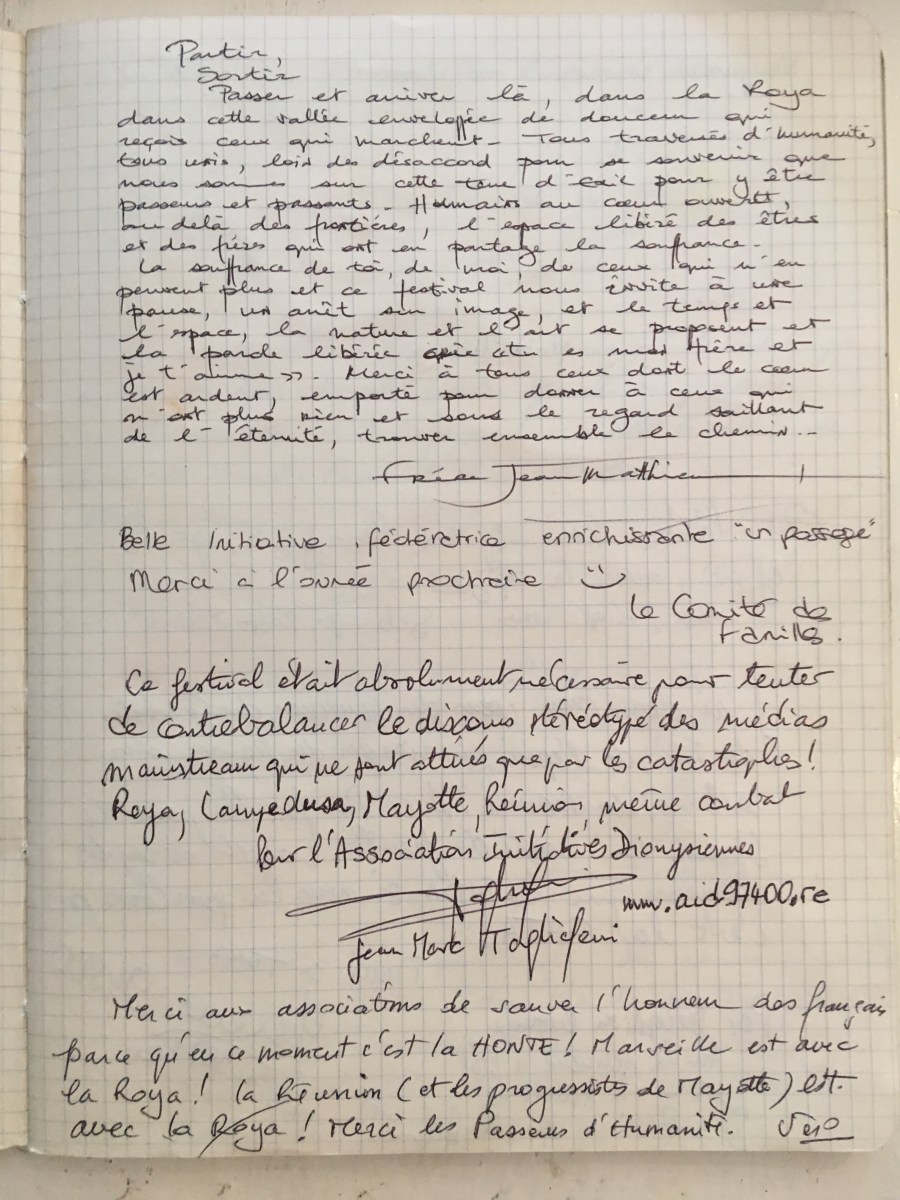 Partir,
Sortir
Passer et arriver là, dans la Roya
dans cette vallée enveloppée de douceur qui
reçois ceux qui marchent - Tous traversés d'humanité,
tous unis, loin des désaccord pour se souvenir que
nous sommes sur cette terre d'exil pour y être
passeurs et passants - Humains au cœur ouvert,
au delà des frontières, l'espace libéré des êtres
et des frères qui ont en partage la souffrance -
La souffrance de toi, de moi, de ceux qui n'en
peuvent plus et ce festival nous invite à une
pause, un arrêt sur image, et le temps et
l'espace, la nature et l'art se proposent et
la parole libérée crie « tu es mon frère et
je t'aime ». Merci à tous ceux dont le cœur
est ardent, emporté pour donner à ceux qui
n'ont plus rien et sous le regard saillant
de l'éternité, trouver ensemble le chemin...
Frère Jean Mathieu
Belle Initiative, fédératrice enrichissante "un passage"
Merci à l'année prochaine
Le Comité des
Familles.
Ce festival était absolument nécessaire pour tenter
de contrebalancer le discours stéréotypé des médias
mainstream qui ne sont attirés que par les catastrophes !
Roya, Lampedusa, Mayotte, Réunion, même combat
Pour l'Association Initiatives Dionysiennes
www.aid97400.re
Jean Marc
Merci aux associations de sauver l'honneur des français
parce qu'en ce moment c'est la HONTE ! Marseille est avec
la Roya ! la Réunion (et les progressistes de Mayotte) est
avec la Roya ! Merci les Passeurs d'Humanité. Véro